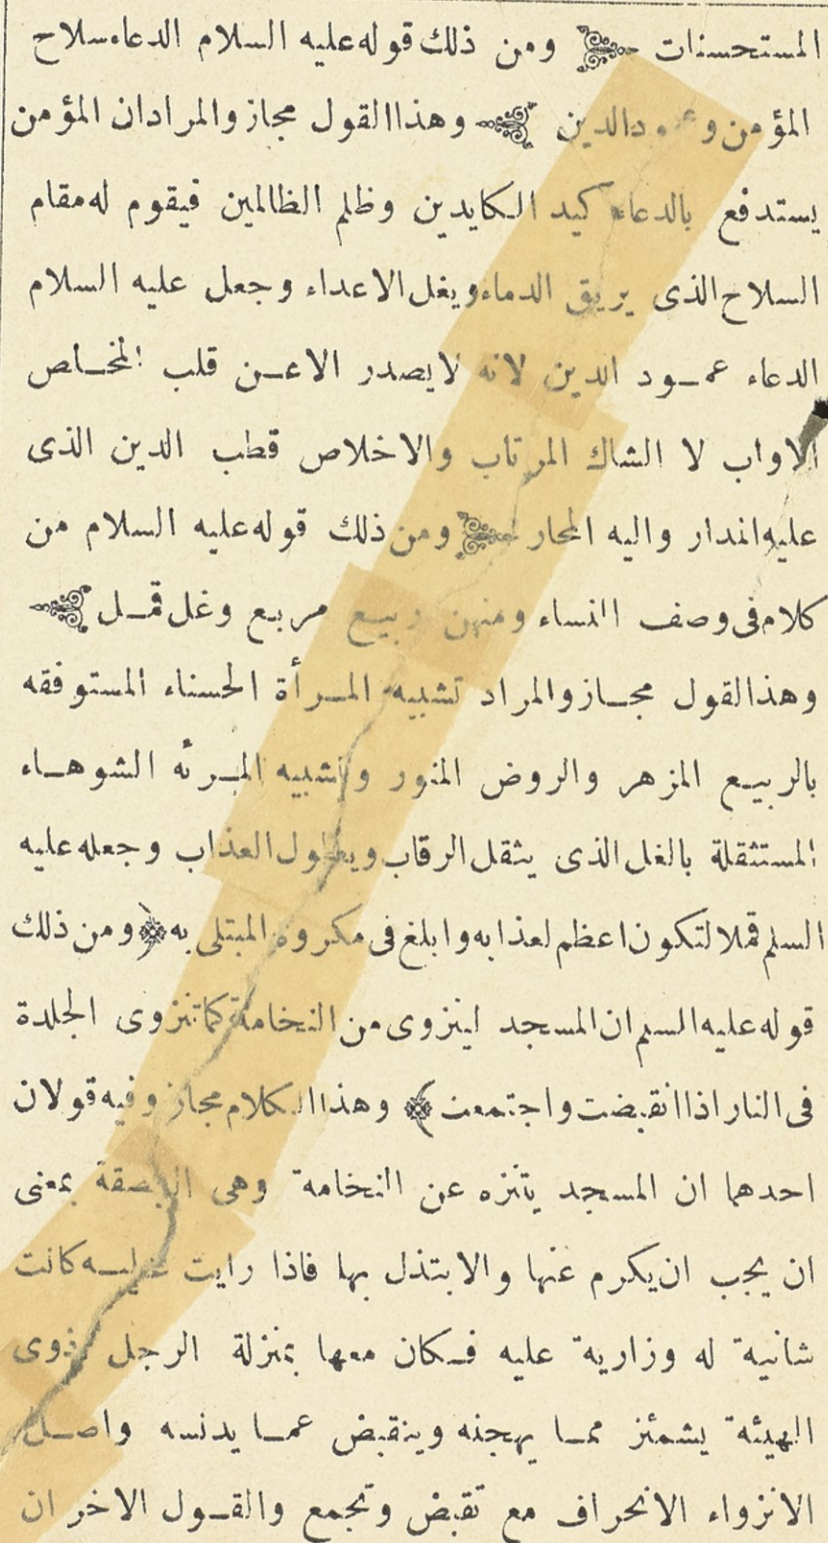 المستحسنات ومن ذلك قوله عليه السلام الدعاء سلاح
المؤمن وعمود الدين وهذا القول مجاز والمراد ان المؤمن
يستدفع بالدعاء كيد الكايدين وظلم الظالمين فيقوم له مقام
السلاح الذى يريق الدماء ويغل الاعداء وجعل عليه السلام
الدعاء عمـود الدين لانه لا يصدر الا عـن قلب المخـاص
الاواب لا الشاك المرتاب والاخلاص قطب الدين الذى
عليه المدار واليه المحار ومن ذلك قوله عليه السلام من
كلام فى وصف النساء ومنهن ربيـع مربـع وغل قمـل
وهذا القول مجـاز والمراد تشبيه المـرأة الحسناء المستوفقه
بالربيـع المزهر والروض المنور وتشبيه المـرئه الشوهـاء
المستثقلة بالغل الذى يثقل الرقاب ويطول العذاب وجعله عليه
السلم قملا لتكون اعظم لعذابه وابلغ فى مكروه المبتلى به ﴿ ومن ذلك
قوله عليه السلم ان المسجد لينزوى من النخامة كما تنزوى الجلدة
فى النار اذا انقبضت واجتمعت ﴾ وهذا الكلام مجاز وفيه قولان
احدهما ان المسجد يتنزه عن النخامة وهى البصقة بمعنى
ان يجب ان يكرم عنها والا بتذل بها فاذا رايت عليـه كانت
شانية له وزارية عليه فـكان معها بمنزلة الرجل ذوى
الهيئة يشمئز ممـا يهجنه وينقبض عمـا يدنسه واصـل
الانزواء الانحراف مع تقبض وتجمع والقـول الاخر ان